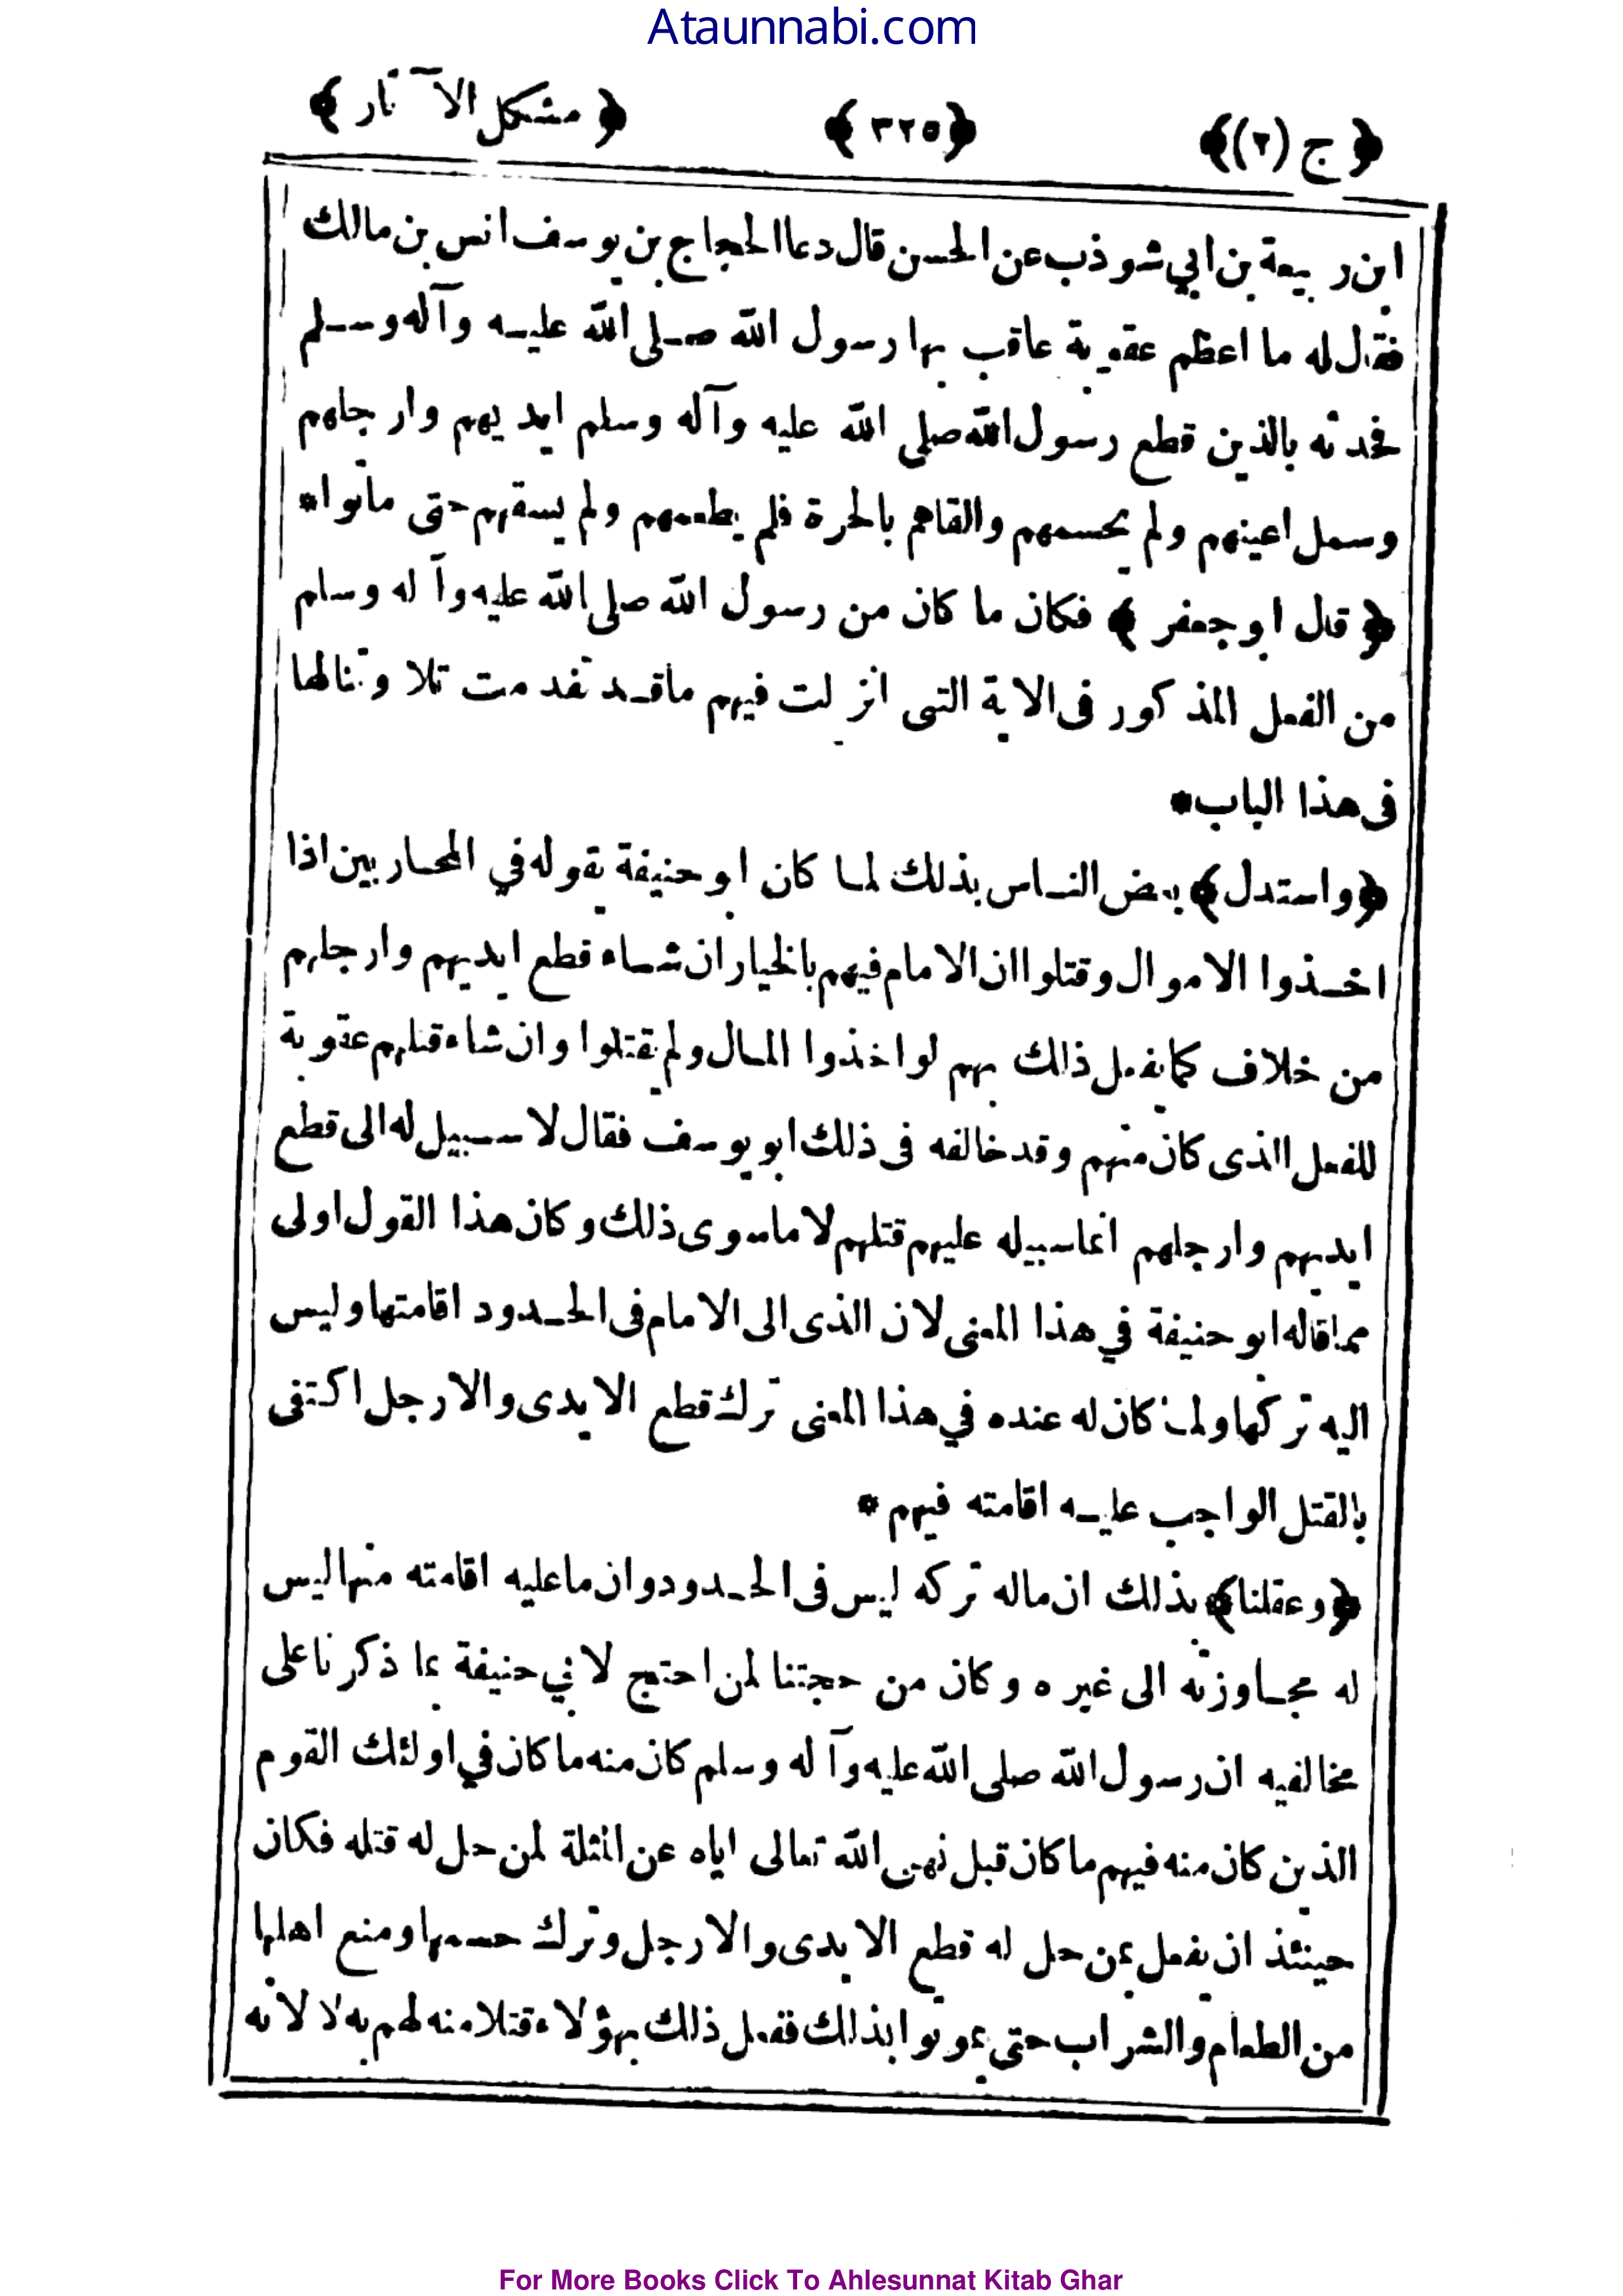 Ataunnabi.com
﴿ ج (٢) ﴾ ﴿ ٣٢٥ ﴾ ﴿ مشكل الآثار ﴾
ابن ربيعة بن ابي شوذب عن الحسن قال دعا الحجاج بن يوسف انس بن مالك
فقال له ما اعظم عقوبة عاقب بها رسول الله صلى الله عليه وآله وسلم
فحدثه بالذين قطع رسول الله صلى الله عليه وآله وسلم ايديهم وارجلهم
وسمل اعينهم ولم يحسمهم والقاهم بالحرة فلم يطعمهم ولم يسقهم حتى ماتوا*
﴿ قال ابو جعفر ﴾ فكان ما كان من رسول الله صلى الله عليه وآله وسلم
من الفعل المذكور فى الاية التى انزلت فيهم ماقد تقدمت تلاوتنالها
فى هذا الباب*
﴿ واستدل ﴾ بعض الناس بذلك لما كان ابو حنيفة يقوله في المحاربين اذا
اخذوا الاموال وقتلوا ان الامام فيهم بالخيار ان شاء قطع ايديهم وارجلهم
من خلاف كما يفعل ذلك بهم لو اخذوا المال ولم يقتلوا وان شاء قتلهم عقوبة
للفعل الذى كان منهم وقد خالفه فى ذلك ابو يوسف فقال لا سبيل له الى قطع
ايديهم وارجلهم انما سبيله عليهم قتلهم لا ما سوى ذلك وكان هذا القول اولى
مما قاله ابو حنيفة في هذا المعنى لان الذى الى الامام فى الحدود اقامتها وليس
اليه تركها ولما كان له عنده في هذا المعنى ترك قطع الايدى والارجل اكتفى
بالقتل الواجب عليه اقامته فيهم *
﴿ وعقلنا ﴾ بذلك ان ماله تركه ليس فى الحدود وان ما عليه اقامته منها ليس
له مجاوزته الى غيره وكان من حجتنا لمن احتج لابي حنيفة بما ذكرنا على
مخالفيه ان رسول الله صلى الله عليه وآله وسلم كان منه ما كان في اولئك القوم
الذين كان منه فيهم ما كان قبل نهى الله تعالى اياه عن المثلة لمن حل له قتله فكان
حينئذ ان يفعل بمن حل له قطع الايدى والارجل وترك حسمها ومنع اهلها
من الطعام والشراب حتى يموتوا بذلك ففعل ذلك بهؤلاء قتلا منه لهم به لا لانه
For More Books Click To Ahlesunnat Kitab Ghar